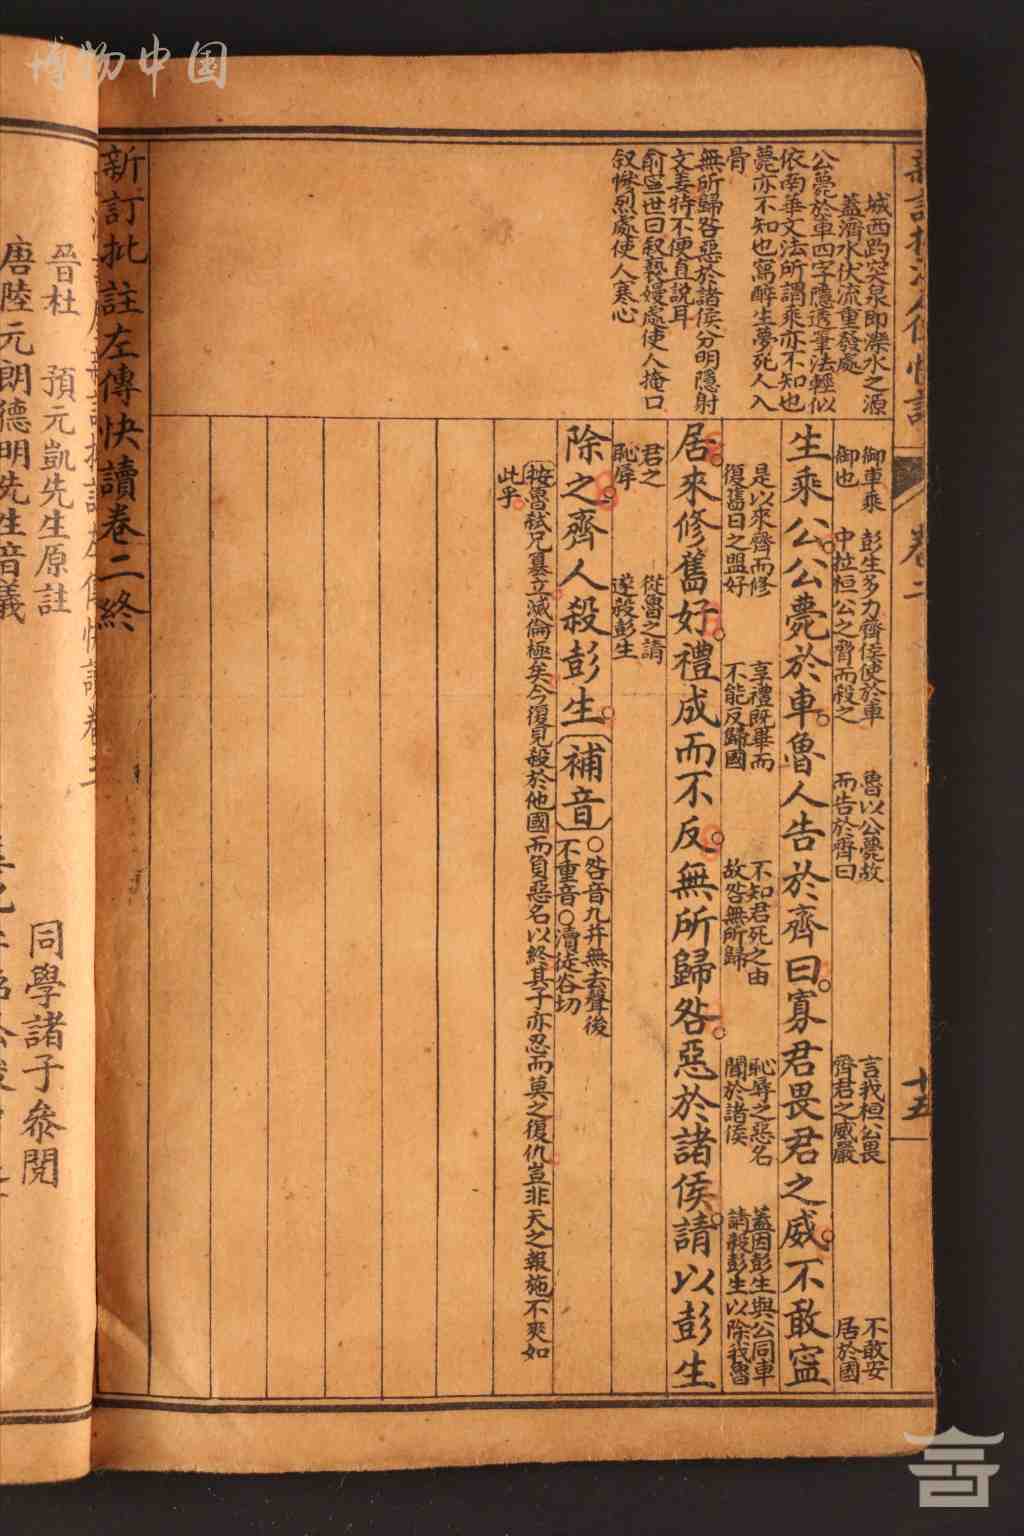 博物中国
卷二
十五
城西趵突泉即濼水之源
蓋濟水伏流重發處
公薨於車四字隱透筆法輕似
依南華文法所謂乘亦不知也
薨亦不知也寫醉生夢死人入
骨
無所歸咎惡於諸侯分明隱射
文姜特不便直說耳
俞寧世曰叙褻嫚處使人掩口
叙慘烈處使人寒心
御車乘
御也
彭生多力齊侯使於車
中拉桓公之脅而殺之
魯以公薨故
而告於齊曰
言我桓公畏
齊君之威嚴
不敢安
居於國
生乘公公薨於車魯人告於齊曰寡君畏君之威不敢寍
是以來齊而修
復舊日之盟好
享禮既畢而
不能反歸國
不知君死之由
故咎無所歸
恥辱之惡名
聞於諸侯
蓋因彭生與公同車
請殺彭生以除我魯
居來修舊好禮成而不反無所歸咎惡於諸侯請以彭生
君之
恥辱
從魯之請
遂殺彭生
除之齊人殺彭生補音○咎音九幷無去聲後
不重音○瀆徒谷切
按魯弒兄篡立滅倫極矣今復見殺於他國而負惡名以終其子亦忍而莫之復仇豈非天之報施不爽如
此乎
新訂批註左傳快讀卷二終
晉杜 預元凱先生原註
唐陸元朗德明先生音義
同學諸子叅閱